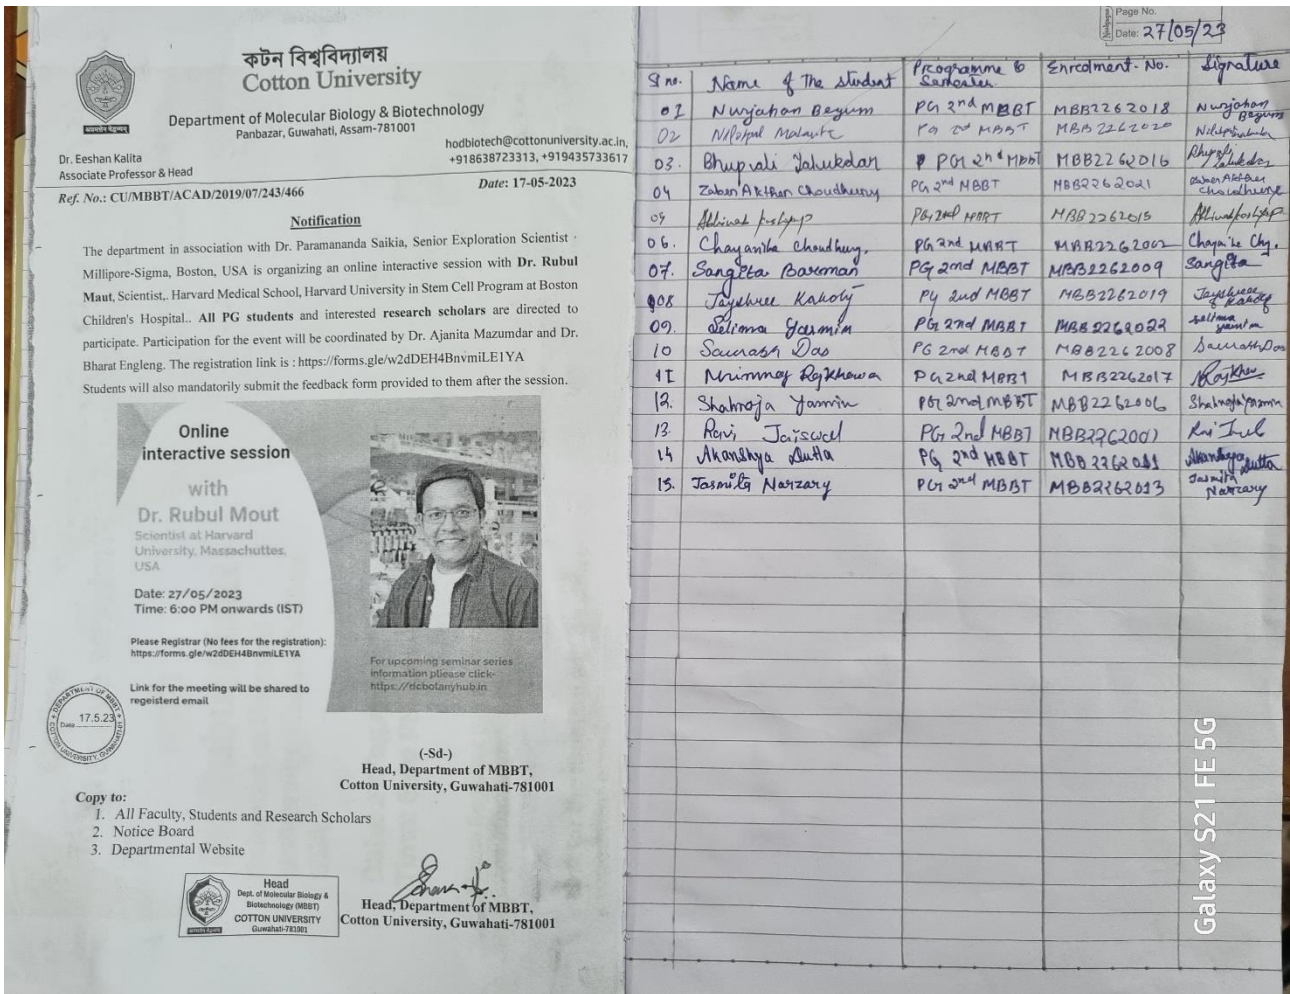 কটন বিশ্ববিদ্যালয়
Cotton University
Department of Molecular Biology & Biotechnology
Panbazar, Guwahati, Assam-781001
hodbiotech@cottonuniversity.ac.in,
Dr. Eeshan Kalita +918638723313, +919435733617
Associate Professor & Head
Ref. No.: CU/MBBT/ACAD/2019/07/243/466 Date: 17-05-2023
Notification
The department in association with Dr. Paramananda Saikia, Senior Exploration Scientist
Millipore-Sigma, Boston, USA is organizing an online interactive session with Dr. Rubul
Maut, Scientist,. Harvard Medical School, Harvard University in Stem Cell Program at Boston
Children's Hospital.. All PG students and interested research scholars are directed to
participate. Participation for the event will be coordinated by Dr. Ajanita Mazumdar and Dr.
Bharat Engleng. The registration link is : https://forms.gle/w2dDEH4BnvmiLE1YA
Students will also mandatorily submit the feedback form provided to them after the session.
Online
interactive session
with
Dr. Rubul Mout
Scientist at Harvard
University, Massachuttes,
USA
Date: 27/05/2023
Time: 6:00 PM onwards (IST)
Please Registrar (No fees for the registration):
https://forms.gle/w2dDEH4BnvmiLE1YA
Link for the meeting will be shared to
regeisterd email
For upcoming seminar series
information pliease click-
https://dcbotanyhub.in
DEPARTMENT OF MBBT
Date 17.5.23
COTTON UNIVERSITY, GUWAHATI
(-Sd-)
Head, Department of MBBT,
Cotton University, Guwahati-781001
Copy to:
1. All Faculty, Students and Research Scholars
2. Notice Board
3. Departmental Website
Head
Dept. of Molecular Biology &
Biotechnology (MBBT)
COTTON UNIVERSITY
Guwahati-781001
Head, Department of MBBT,
Cotton University, Guwahati-781001
Page No.
Date: 27/05/23
Sl no. Name of The student Programme & Semester Enrolment No. Signature
01 Nurjahan Begum PG 2nd MBBT MBB2262018 Nurjahan Begum
02 PG 2nd MBBT MBB2262020
03. Bhupali Talukdar PG 2nd MBBT MBB2262016 Bhupali Talukdar
04 Zaben Akthar Choudhury PG 2nd MBBT MBB2262021 Choudhury
05 PG 2nd MBBT MBB2262015
06. Chayanika Choudhury. PG 2nd MBBT MBB2262002 Chayanika Chy.
07. Sangita Barman PG 2nd MBBT MBB2262009 Sangita
08 Jayshree Kakoty PG 2nd MBBT MBB2262019 Jayshree Kakoty
09. Selima Yasmin PG 2nd MBBT MBB2262022 Selima Yasmin
10 Saurabh Das PG 2nd MBBT MBB2262008 Saurabh Das
11 Mrinmoy Rajkhowa PG 2nd MBBT MBB2262017
12. Shahnaja Yasmin PG 2nd MBBT MBB2262006 Shahnaja Yasmin
13. Ravi Jaiswal PG 2nd MBBT
14 Akanshya Dutta PG 2nd MBBT MBB2262011 Akanshya Dutta
15. Jasmita Narzary PG 2nd MBBT MBB2262013 Jasmita Narzary
Galaxy S21 FE 5G